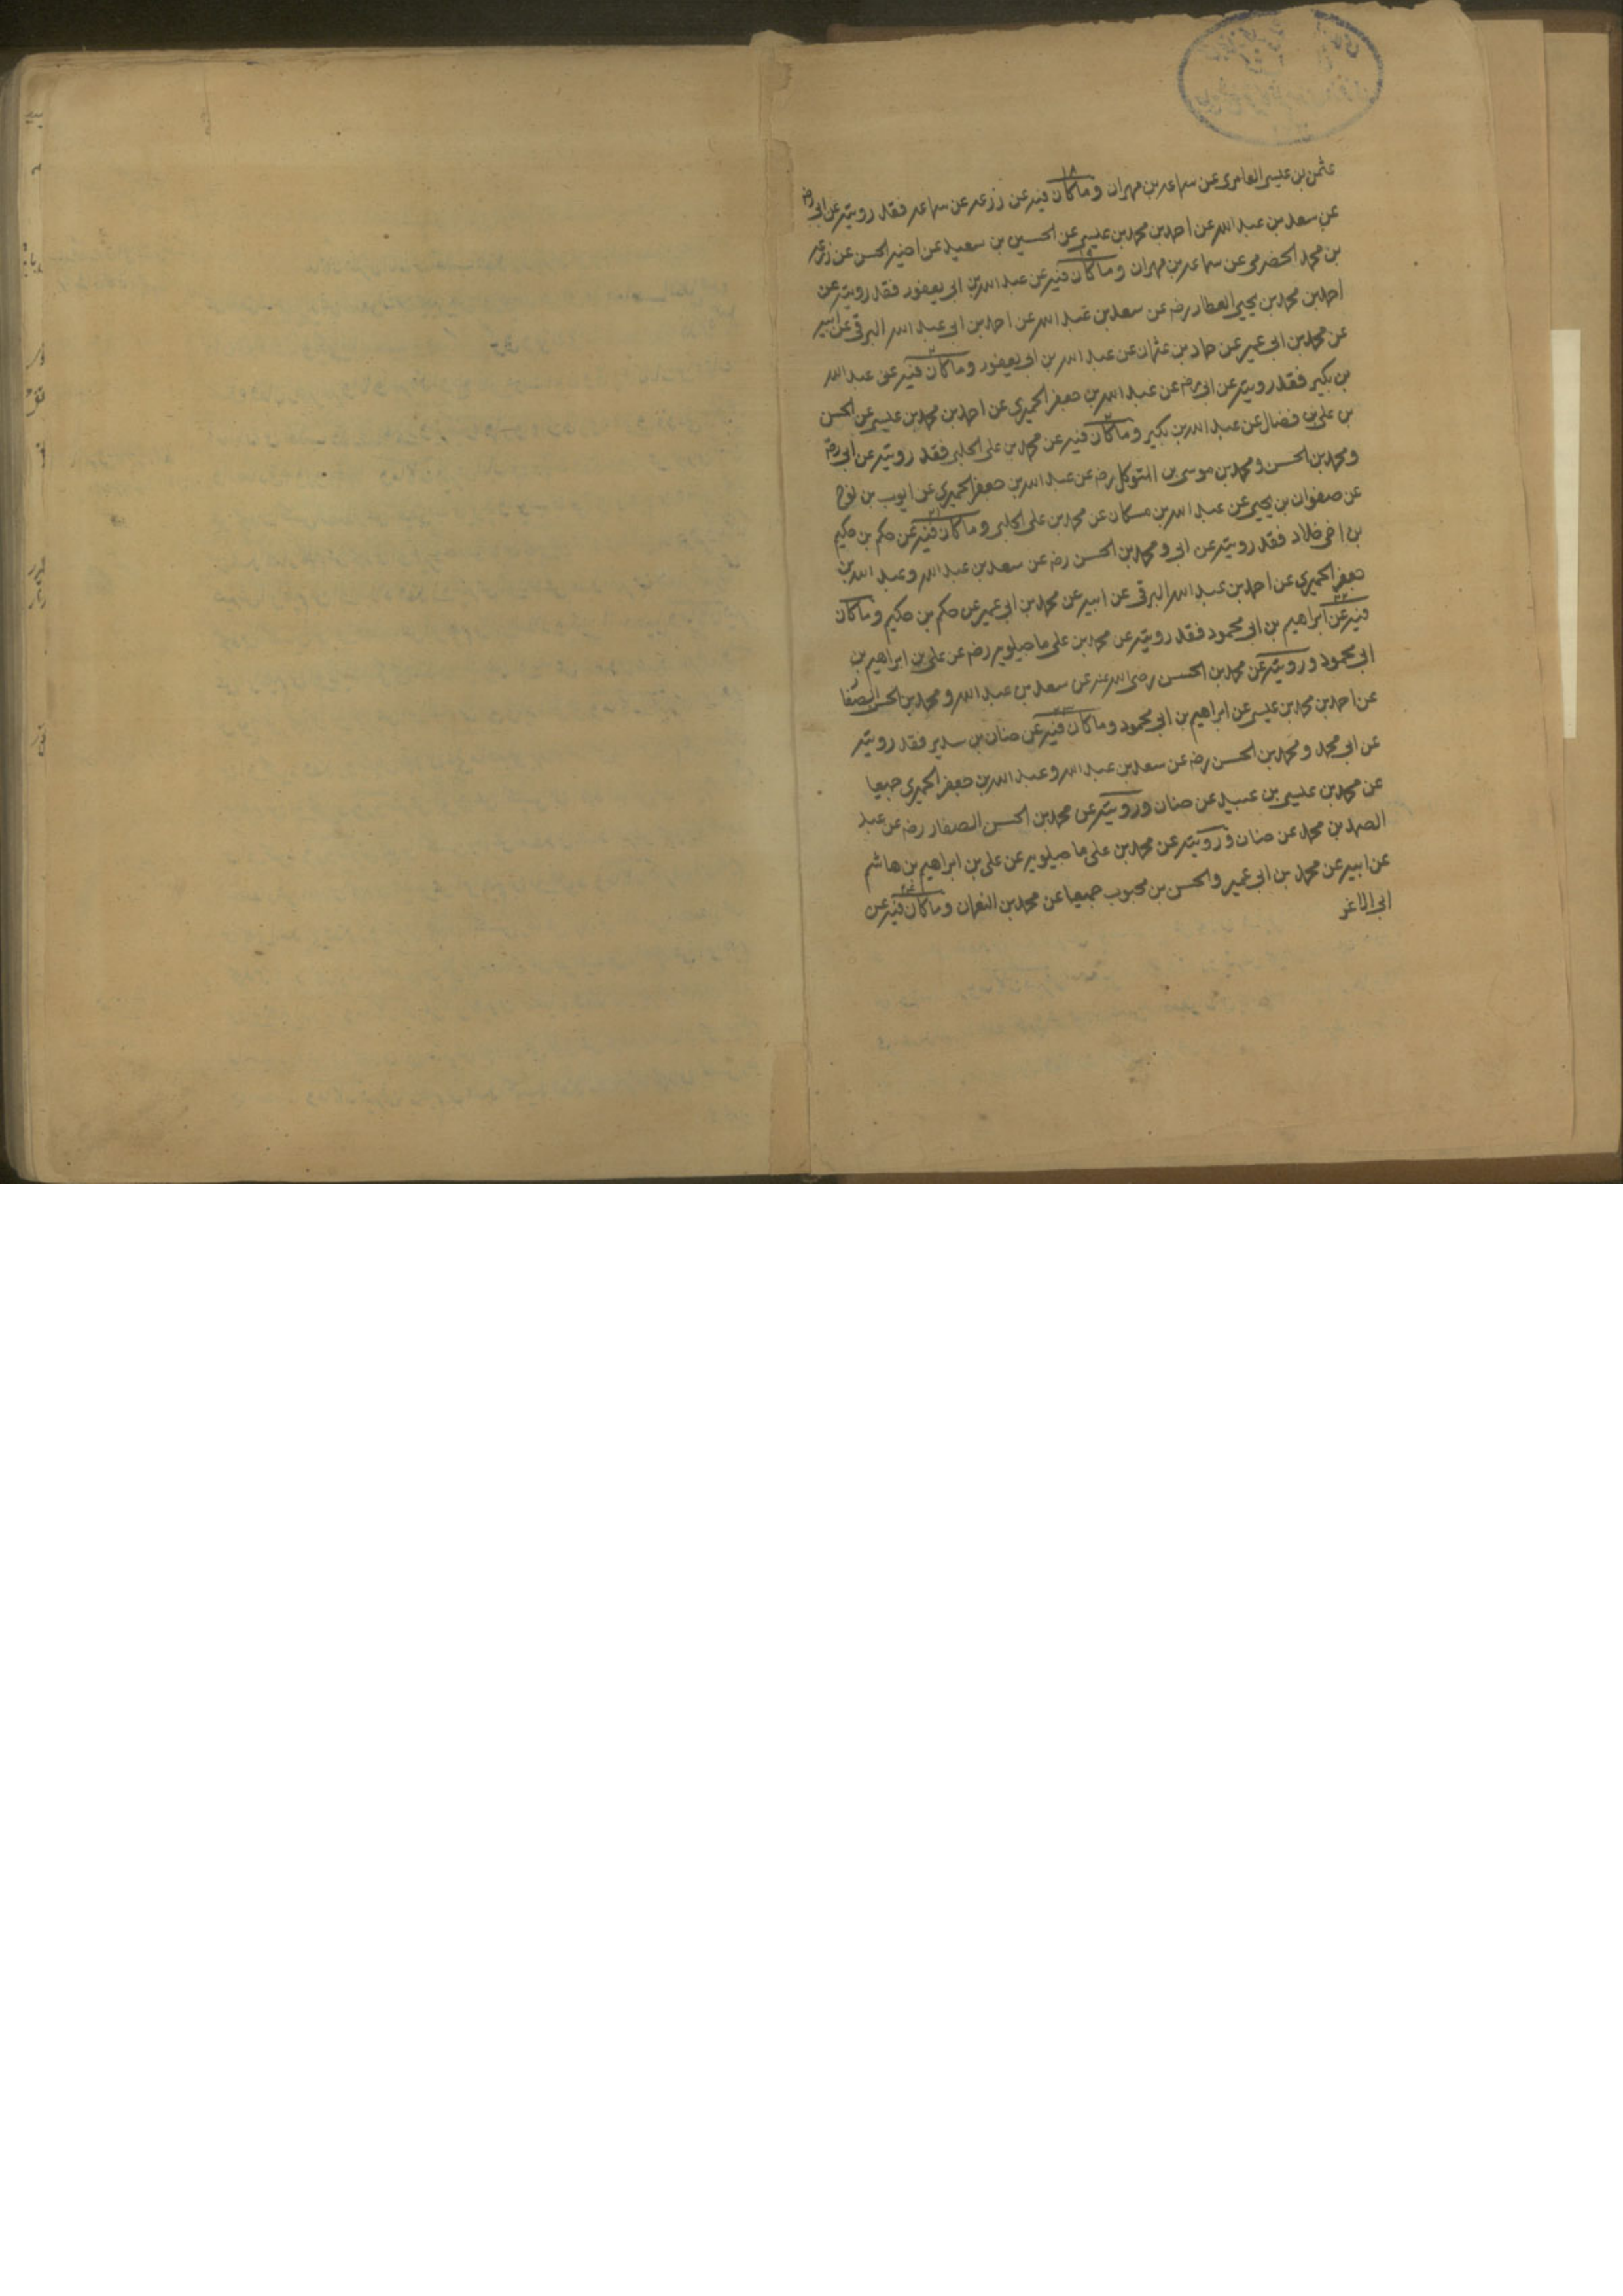 عثمن بن عليسى العامرى عن سماعه بن مهران وما كان فيه عن زرعه عن سماعه فقد رويته عن ابى رضه
عن سعد بن عبد الله عن احمد بن محمد بن عيسى عن الحسين بن سعيد عن اخيه الحسن عن زرعه
بن محمد الحضرمى عن سماعه بن مهران وما كان فيه عن عبد الله بن ابى يعفور فقد رويته عن
احمد بن محمد بن يحيى العطار رضه عن سعد بن عبد الله عن احمد بن ابى عبد الله البرقى عن ابيه
عن محمد بن ابى عمير عن حماد بن عثمان عن عبد الله بن ابى يعفور وما كان فيه عن عبد الله
بن بكير فقد رويته عن ابى رضه عن عبد الله بن جعفر الحميرى عن احمد بن محمد بن عيسى عن الحسن
بن على بن فضال عن عبد الله بن بكير وما كان فيه عن محمد بن على الحلبى فقد رويته عن ابى رضه
ومحمد بن الحسن ومحمد بن موسى بن المتوكل رضه عن عبد الله بن جعفر الحميرى عن ايوب بن نوح
عن صفوان بن يحيى عن عبد الله بن مسكان عن محمد بن على الحلبى وما كان فيه عن حكم بن حكيم
بن اخى خلاد فقد رويته عن ابى ومحمد بن الحسن رضه عن سعد بن عبد الله وعبد الله بن
جعفر الحميرى عن احمد بن عبد الله البرقى عن ابيه عن محمد بن ابى عمير عن حكم بن حكيم وما كان
فيه عن ابراهيم بن ابى محمود فقد رويته عن محمد بن على ماجيلويه رضه عن على بن ابراهيم بن
ابى محمود ورويته عن محمد بن الحسن رضى الله عنه عن سعد بن عبد الله ومحمد بن الحسن الصفار
عن احمد بن محمد بن عيسى عن ابراهيم بن ابى محمود وما كان فيه عن حنان بن سدير فقد رويته
عن ابى محمد ومحمد بن الحسن رضه عن سعد بن عبد الله وعبد الله بن جعفر الحميرى جميعا
عن محمد بن عيسى بن عبيد عن حنان ورويته عن محمد بن الحسن الصفار رضه عن عبد
الصمد بن محمد عن حنان ورويته عن محمد بن على ماجيلويه عن على بن ابراهيم بن هاشم
عن ابيه عن محمد بن ابى عمير والحسن بن محبوب جميعا عن محمد بن النعمان وما كان فيه عن
ابى الاغر